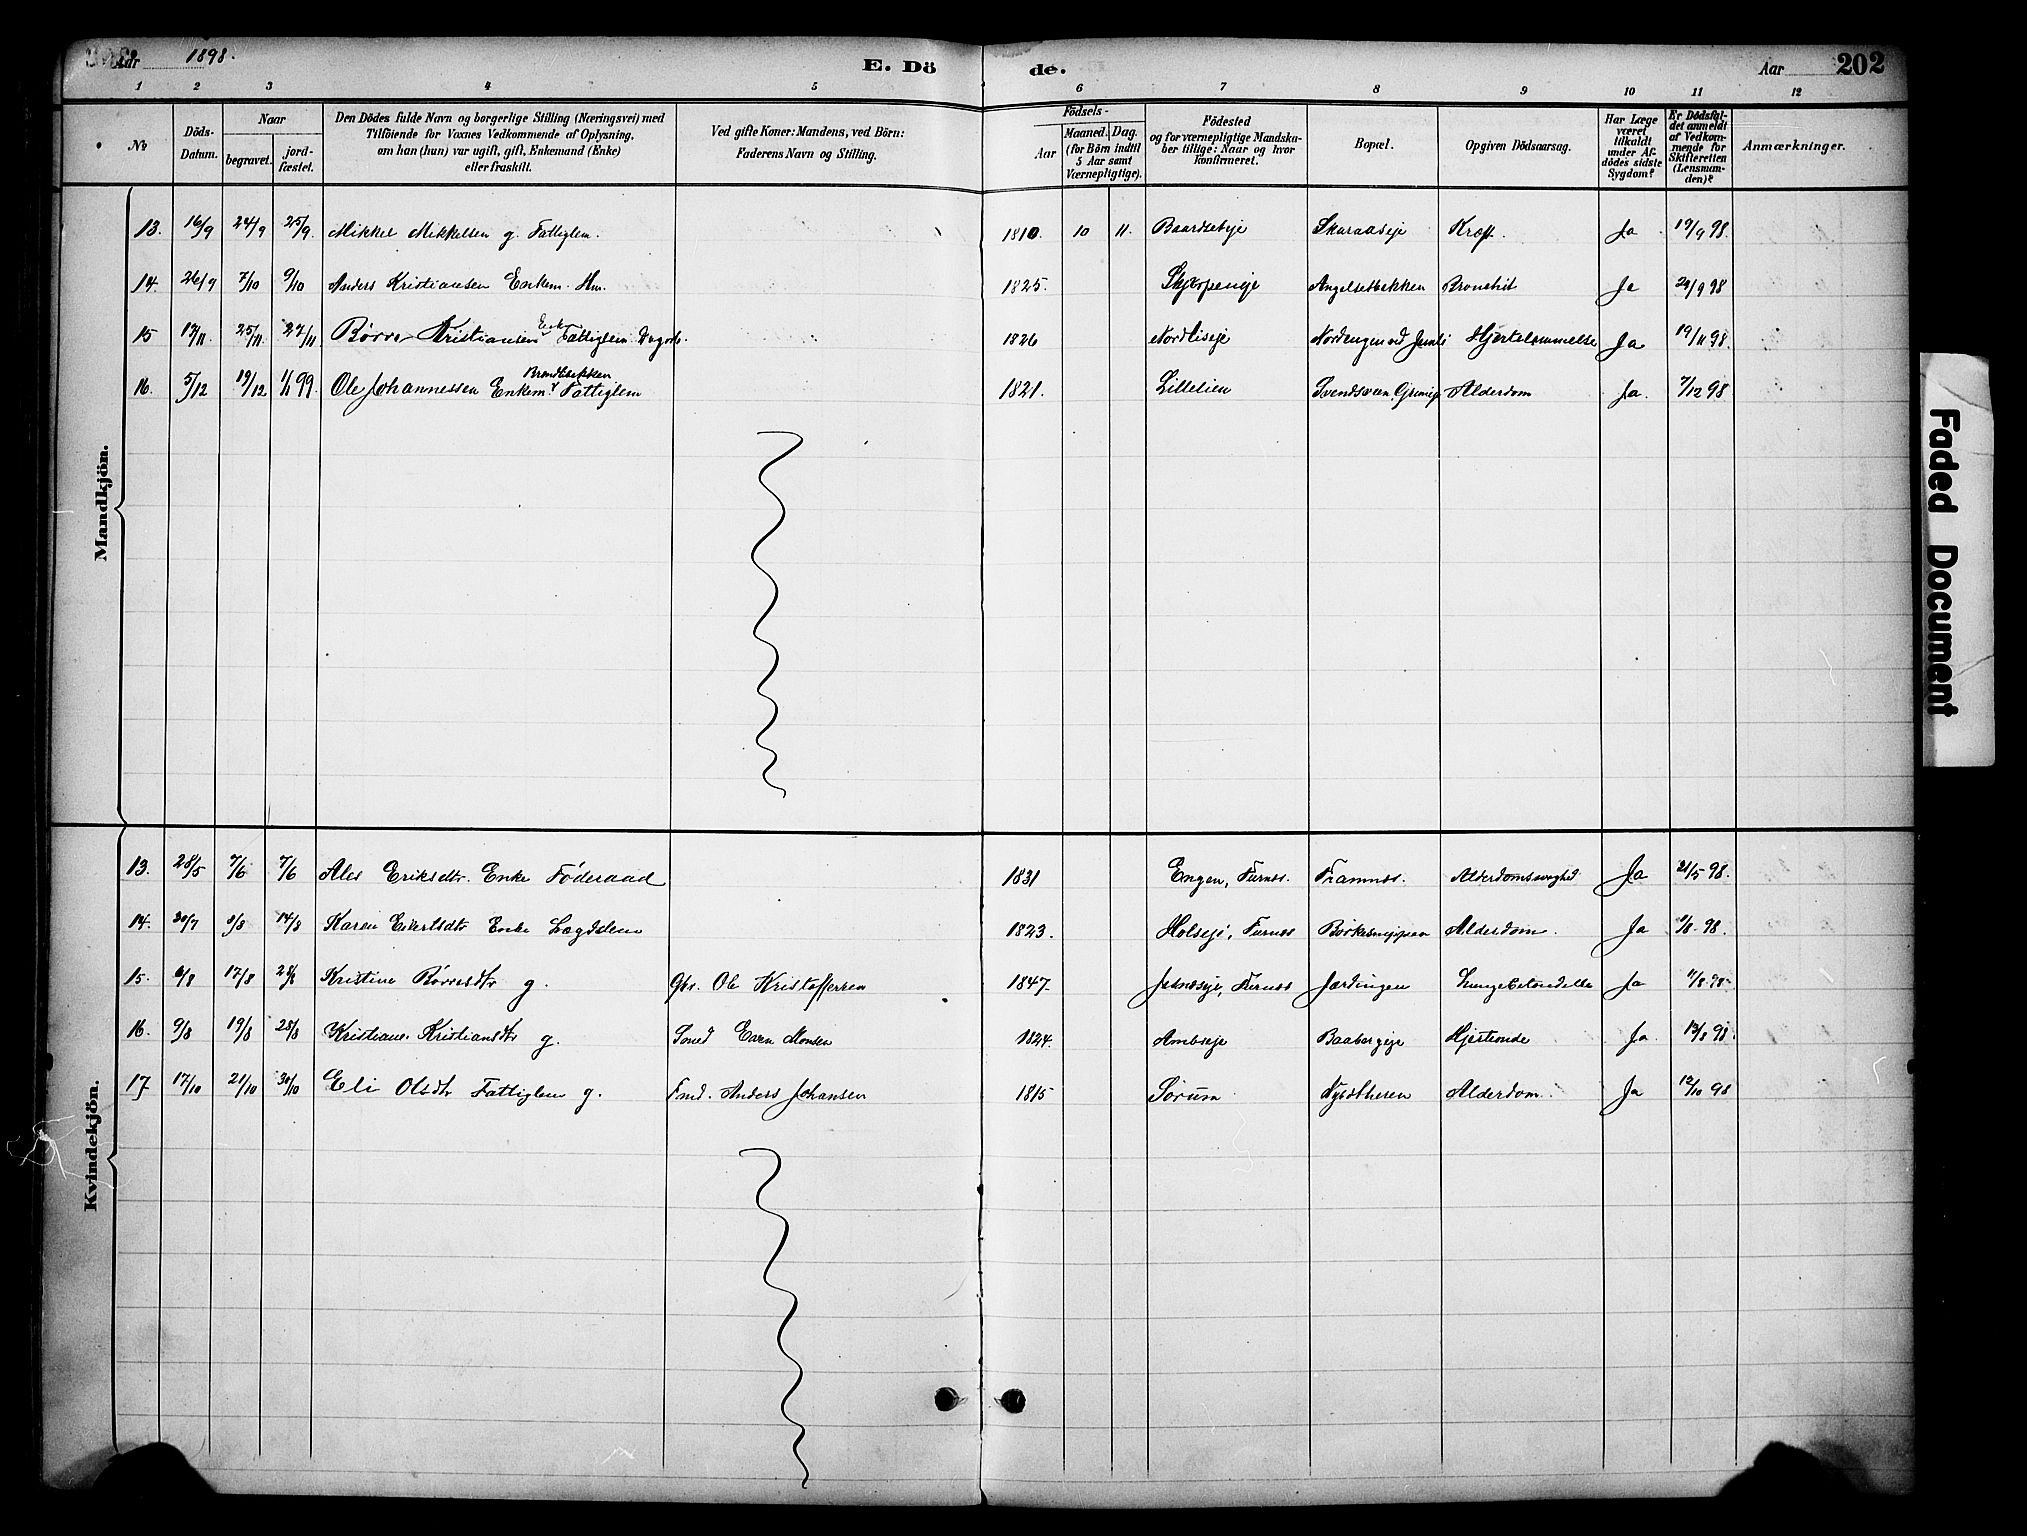 Aar 1898. E. Dö de. Aar 202
1 2 3 4 5 6 7 8 9 10 11 12
No
Döds-Datum.
Naar
begravet.
jord-fæstet.
Den Dödes fulde Navn og borgerlige Stilling (Næringsvei) med
Tilföiende for Voxnes Vedkommende af Oplysning,
om han (hun) var ugift, gift, Enkemand (Enke)
eller fraskilt.
Ved gifte Koner: Mandens, ved Börn:
Faderens Navn og Stilling.
Födsels-
Aar
Maaned. Dag.
(for Börn indtil
5 Aar samt
Værnepligtige).
Födested
og for værnepligtige Mandska-
ber tillige: Naar og hvor
konfirmeret.
Bopæl.
Opgiven Dödsaarsag.
Har Læge
været
tilkaldt
under Af-
dödes sidste
Sygdom?
Er Dödsfal-
det anmeldt
af Vedkom-
mende for
Skifteretten
(Lensman-
den)?
Anmærkninger.
Mandkjön.
13. 16/9 24/9 25/9. Mikkel Mikkelsen g. Fattiglem. 1810. 10 11. Baardseteje Skaraaseje Kræft. Ja 19/9 98.
14. 26/9 7/10 9/10 Anders Kristiansen Enkem. Hm. 1825. Skjærpeneje Bronchit Ja 98
15 17/11 25/11 27/11 Børre Kristiansen Enkem. Fattiglem 1826 Nordliseje Hjertelammelse Ja 19/11 98.
Brændbækken
16. 5/12 19/12 1/1 99. Ole Johannessen Enkem. Fattiglem 1821. Lillelien Alderdom Ja. 7/12 98
Kvindekjön.
13. 28/5 7/6 7/6 Ales Eriksdtr. Enke Föderaad 1831 Engen, Furnes. Framnes. Alderdomssvaghed Ja 98.
14. 30/7 14/8 Karen Enke Lægdslem 1823. Holseje, Furnes Alderdom. Ja 98.
15. 6/8 17/8 28/8 Kristine Børresdtr g. Ole Kristoffersen 1847. Furnes Jærdingen Lungebetændelse Ja 98
16. 9/8 19/8 28/8 Kristiane Kristiansdtr g. Even Monsen 1824. Ambseje Baabergeje Hjerteonde Ja. 13/8 98.
17. 17/10 21/10 30/10 Eli Olsdtr Fattiglem g. Anders Johansen 1815 Sørum Alderdom. Ja 98
Faded Document